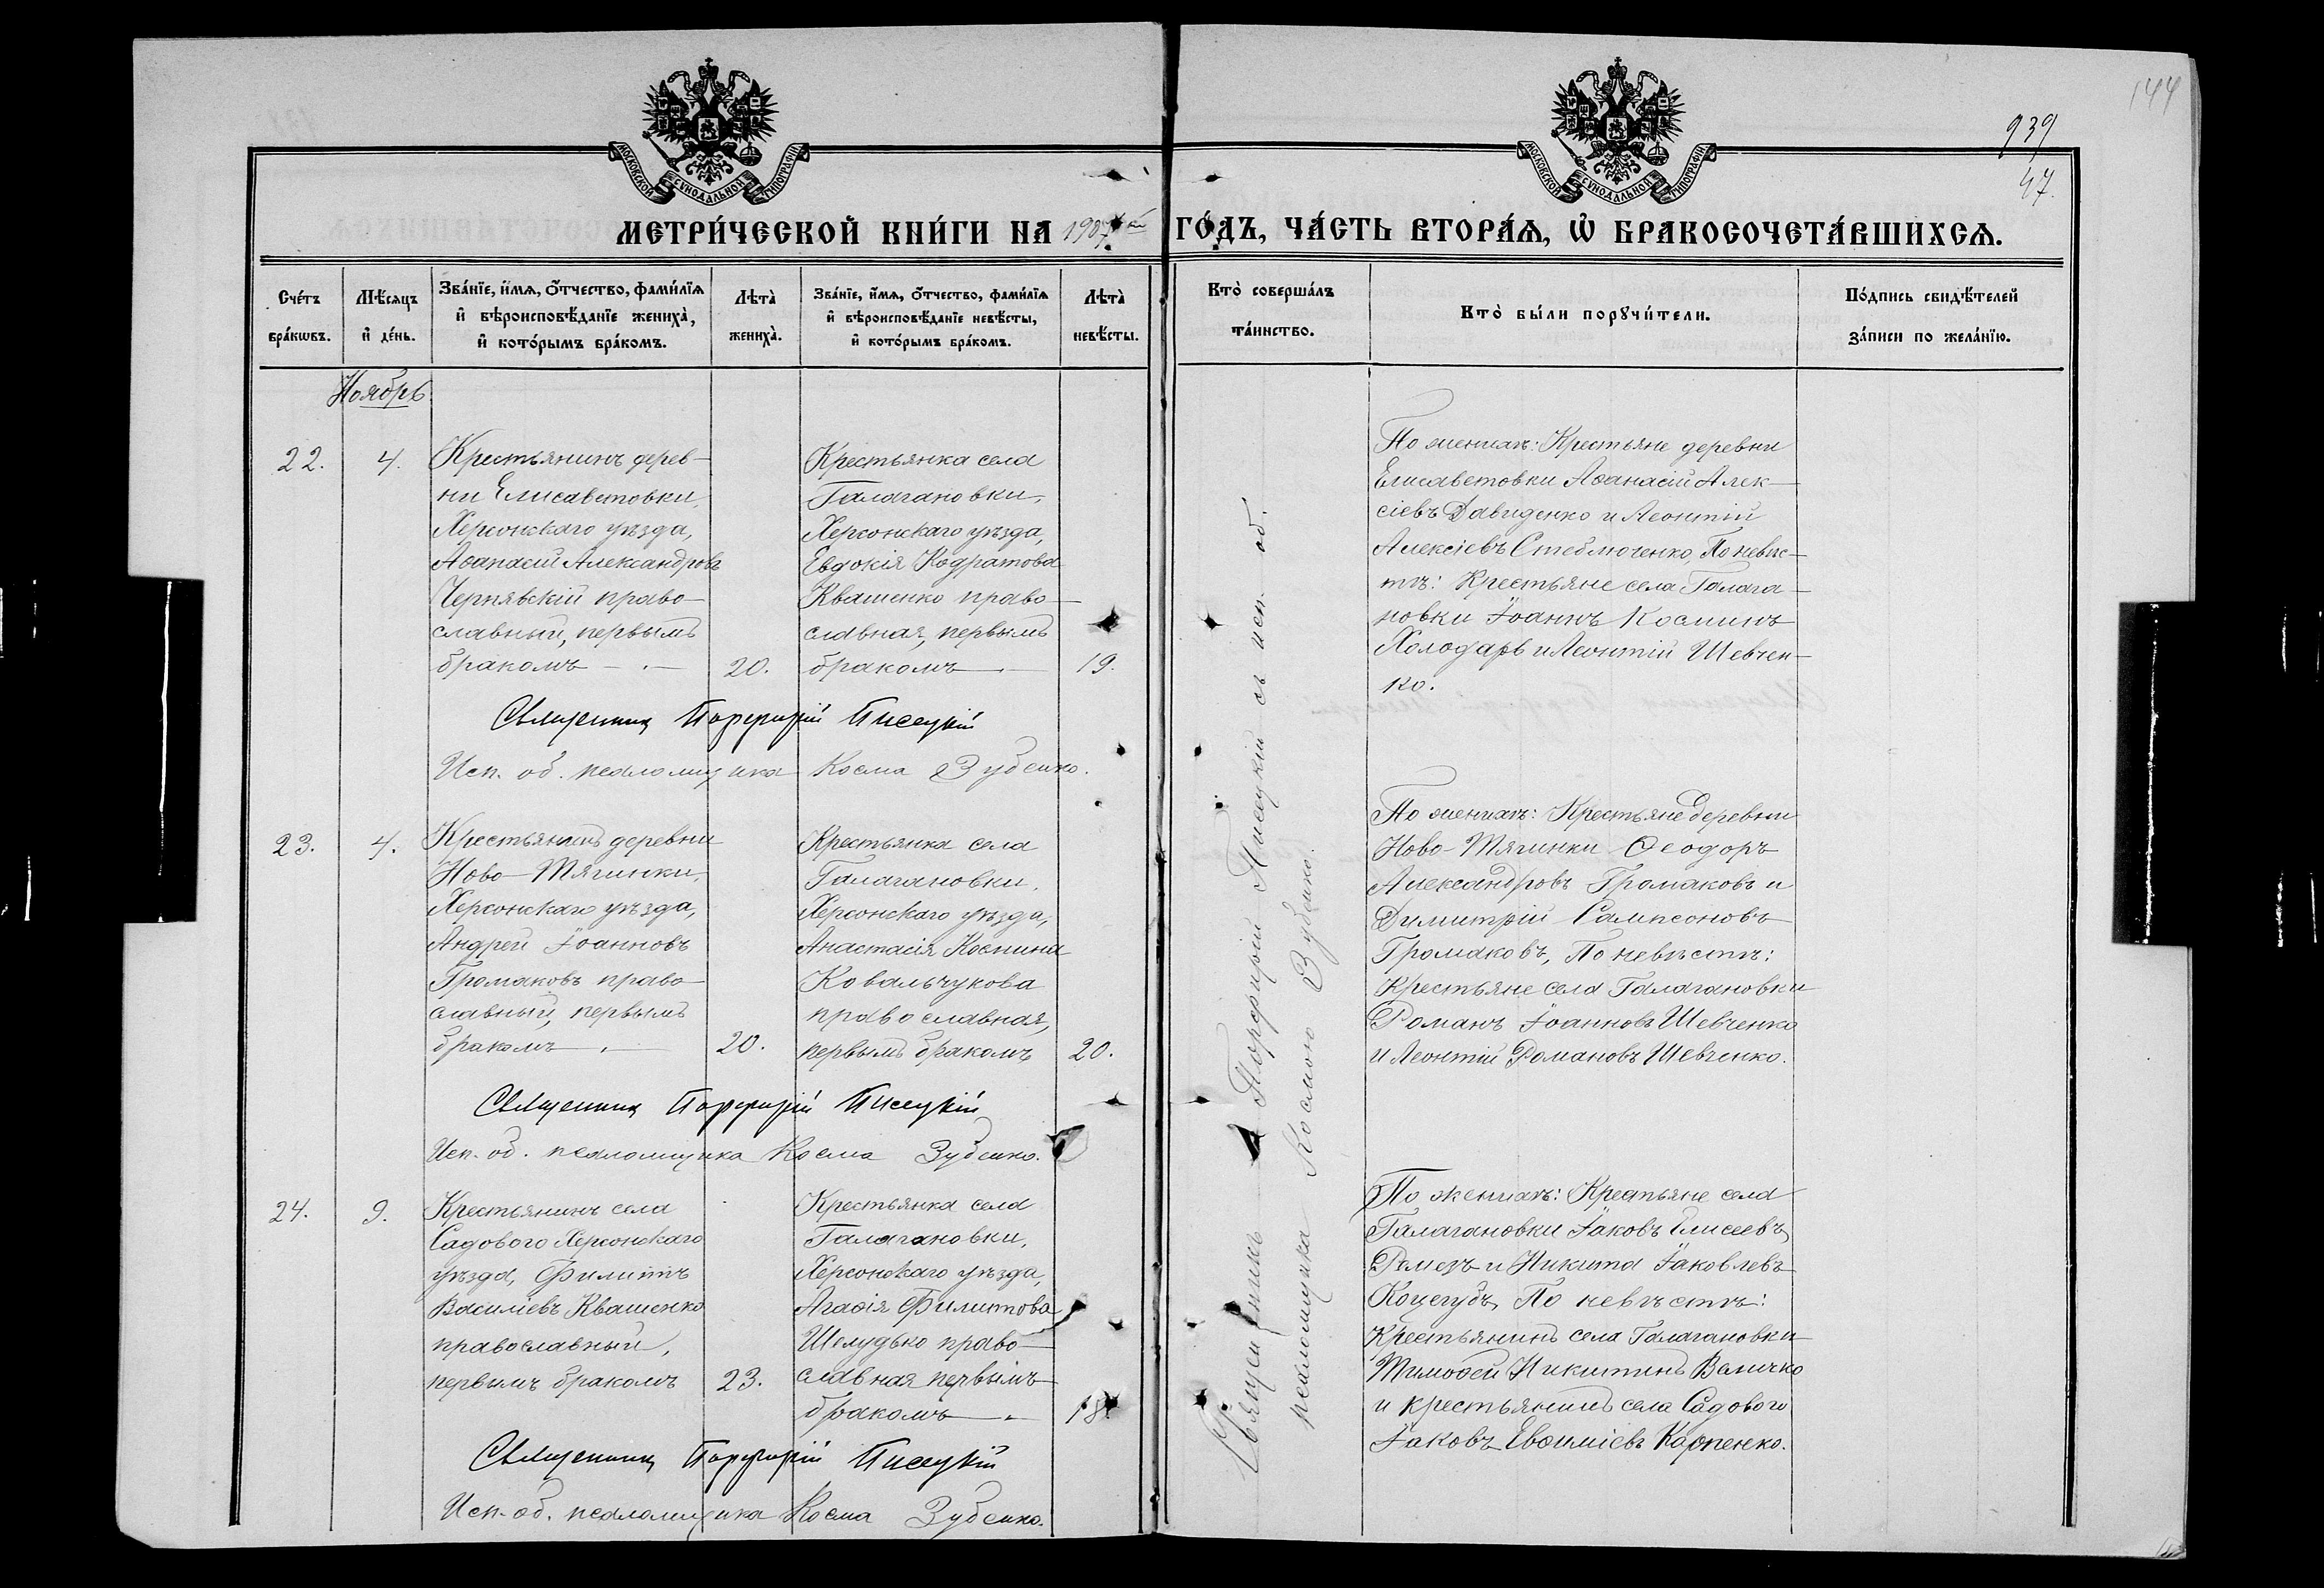 144
939
47.
МОСКОВСКОЙ СѴНОДАЛЬНОЙ ТИПОГРАФІИ
МОСКОВСКОЙ СѴНОДАЛЬНОЙ ТИПОГРАФІИ
МЕТРИ́ЧЕСКОЙ КНИ́ГИ НА 1907ый ГО́ДЪ, ЧА́СТЬ ВТОРА́Ѧ, Ѡ҆ БРАКОСОЧЕТА́ВШИХСѦ.
Сче́тъ бра́кѡвъ.
Мѣ́сѧцъ и҆ де́нь.
Зва́нїе, и҆́мѧ, ѻ҆́тчество, фами́лїѧ
и҆ вѣроисповѣ́данїе жениха̀,
и҆ кото́рымъ бра́комъ.
Лѣта̀ жениха̀.
Зва́нїе, и҆́мѧ, ѻ҆́тчество, фами́лїѧ
и҆ вѣроисповѣ́данїе невѣ́сты,
и҆ кото́рымъ бра́комъ.
Лѣта̀ невѣ́сты.
Кто̀ соверша́лъ та́инство.
Кто̀ бы́ли порꙋчи́тели.
По́дпись свидѣ́телей
за́писи по жела́нїю.
Ноябрь.
22.
4.
Крестьянинъ дерев-
ни Елисаветовки,
Херсонскаго уѣзда,
Аѳанасій Александровъ
Чернявскій право-
славный, первымъ
бракомъ
20.
Крестьянка села
Галагановки,
Херсонскаго уѣзда,
Евдокія Кодратова
Квашенко право-
славная, первымъ
бракомъ
19.
По женихѣ: Крестьяне деревни
Елисаветовки Аѳанасій Алек-
сіевъ Давиденко и Леонтій
Алексіевъ Стеблюченко, По невѣс-
тѣ: Крестьяне села Галага-
новки Іоаннъ Косминъ
Холодарь и Леонтій Шевчен-
ко.
Священникъ Порфирій Писецкій
Исп. об. псаломщика Косма Зубенко.
23.
4.
Крестьянинъ деревни
Ново-Тягинки,
Херсонскаго уѣзда,
Андрей Іоанновъ
Громаковъ право-
славный, первымъ
бракомъ
20.
Крестьянка села
Галагановки,
Херсонскаго уѣзда,
Анастасія Космина
Ковальчукова
православная,
первымъ бракомъ
20.
По женихѣ: Крестьяне деревни
Ново-Тягинки Ѳеодоръ
Александровъ Громаковъ и
Димитрій Сампсоновъ
Громаковъ, По невѣстѣ:
Крестьяне села Галагановки
Романъ Іоанновъ Шевченко
и Леонтій Романовъ Шевченко.
Священникъ Порфирій Писецкій
Исп. об. псаломщика Косма Зубенко.
24.
9.
Крестьянинъ села
Садового Херсонскаго
уѣзда, Филиппъ
Василіевъ Квашенко
православный,
первымъ бракомъ
23.
Крестьянка села
Галагановки,
Херсонскаго уѣзда,
Агафія Филиппова
Шелудько право-
славная первымъ
бракомъ
18.
По женихѣ: Крестьяне села
Галагановки Іаковъ Елисеевъ
Ремезъ и Никита Іаковлевъ
Коцегубъ, По невѣстѣ:
Крестьянинъ села Галагановки
Тимоѳей Никитинъ Величко
и крестьянинъ села Садового
Іаковъ Евѳиміевъ Карпенко.
Священникъ Порфирій Писецкій
Исп. об. псаломщика Косма Зубенко.
Священникъ Порфирій Писецкій съ исп. об.
псаломщика Космою Зубенко.